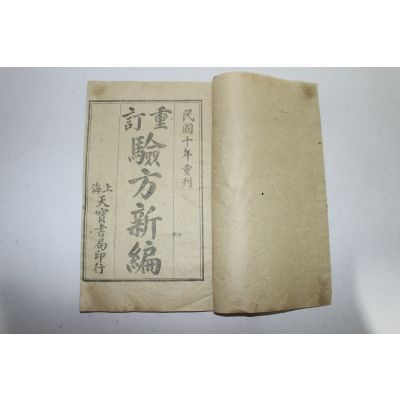 民國十年重刊
重訂
驗方新編
上海
天寶書局印行